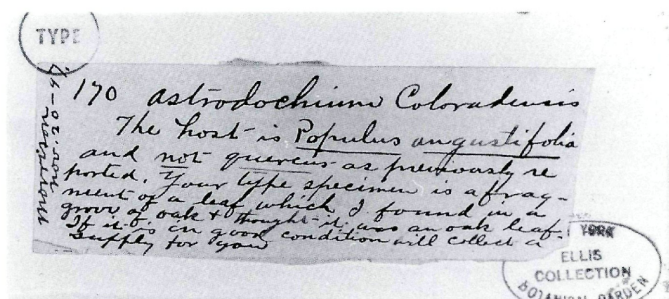 TYPE
170 Astrodochium Coloradensis
The host is Populus angustifolia
and not quercus as previously re
ported. Your type specimen is a frag-
ment of a leaf which I found in a
grove of oak & thought it was an oak leaf.
If it is in good condition will collect a
supply for you
Nov-20-97
YORK
ELLIS
COLLECTION
BOTANICAL GARDEN